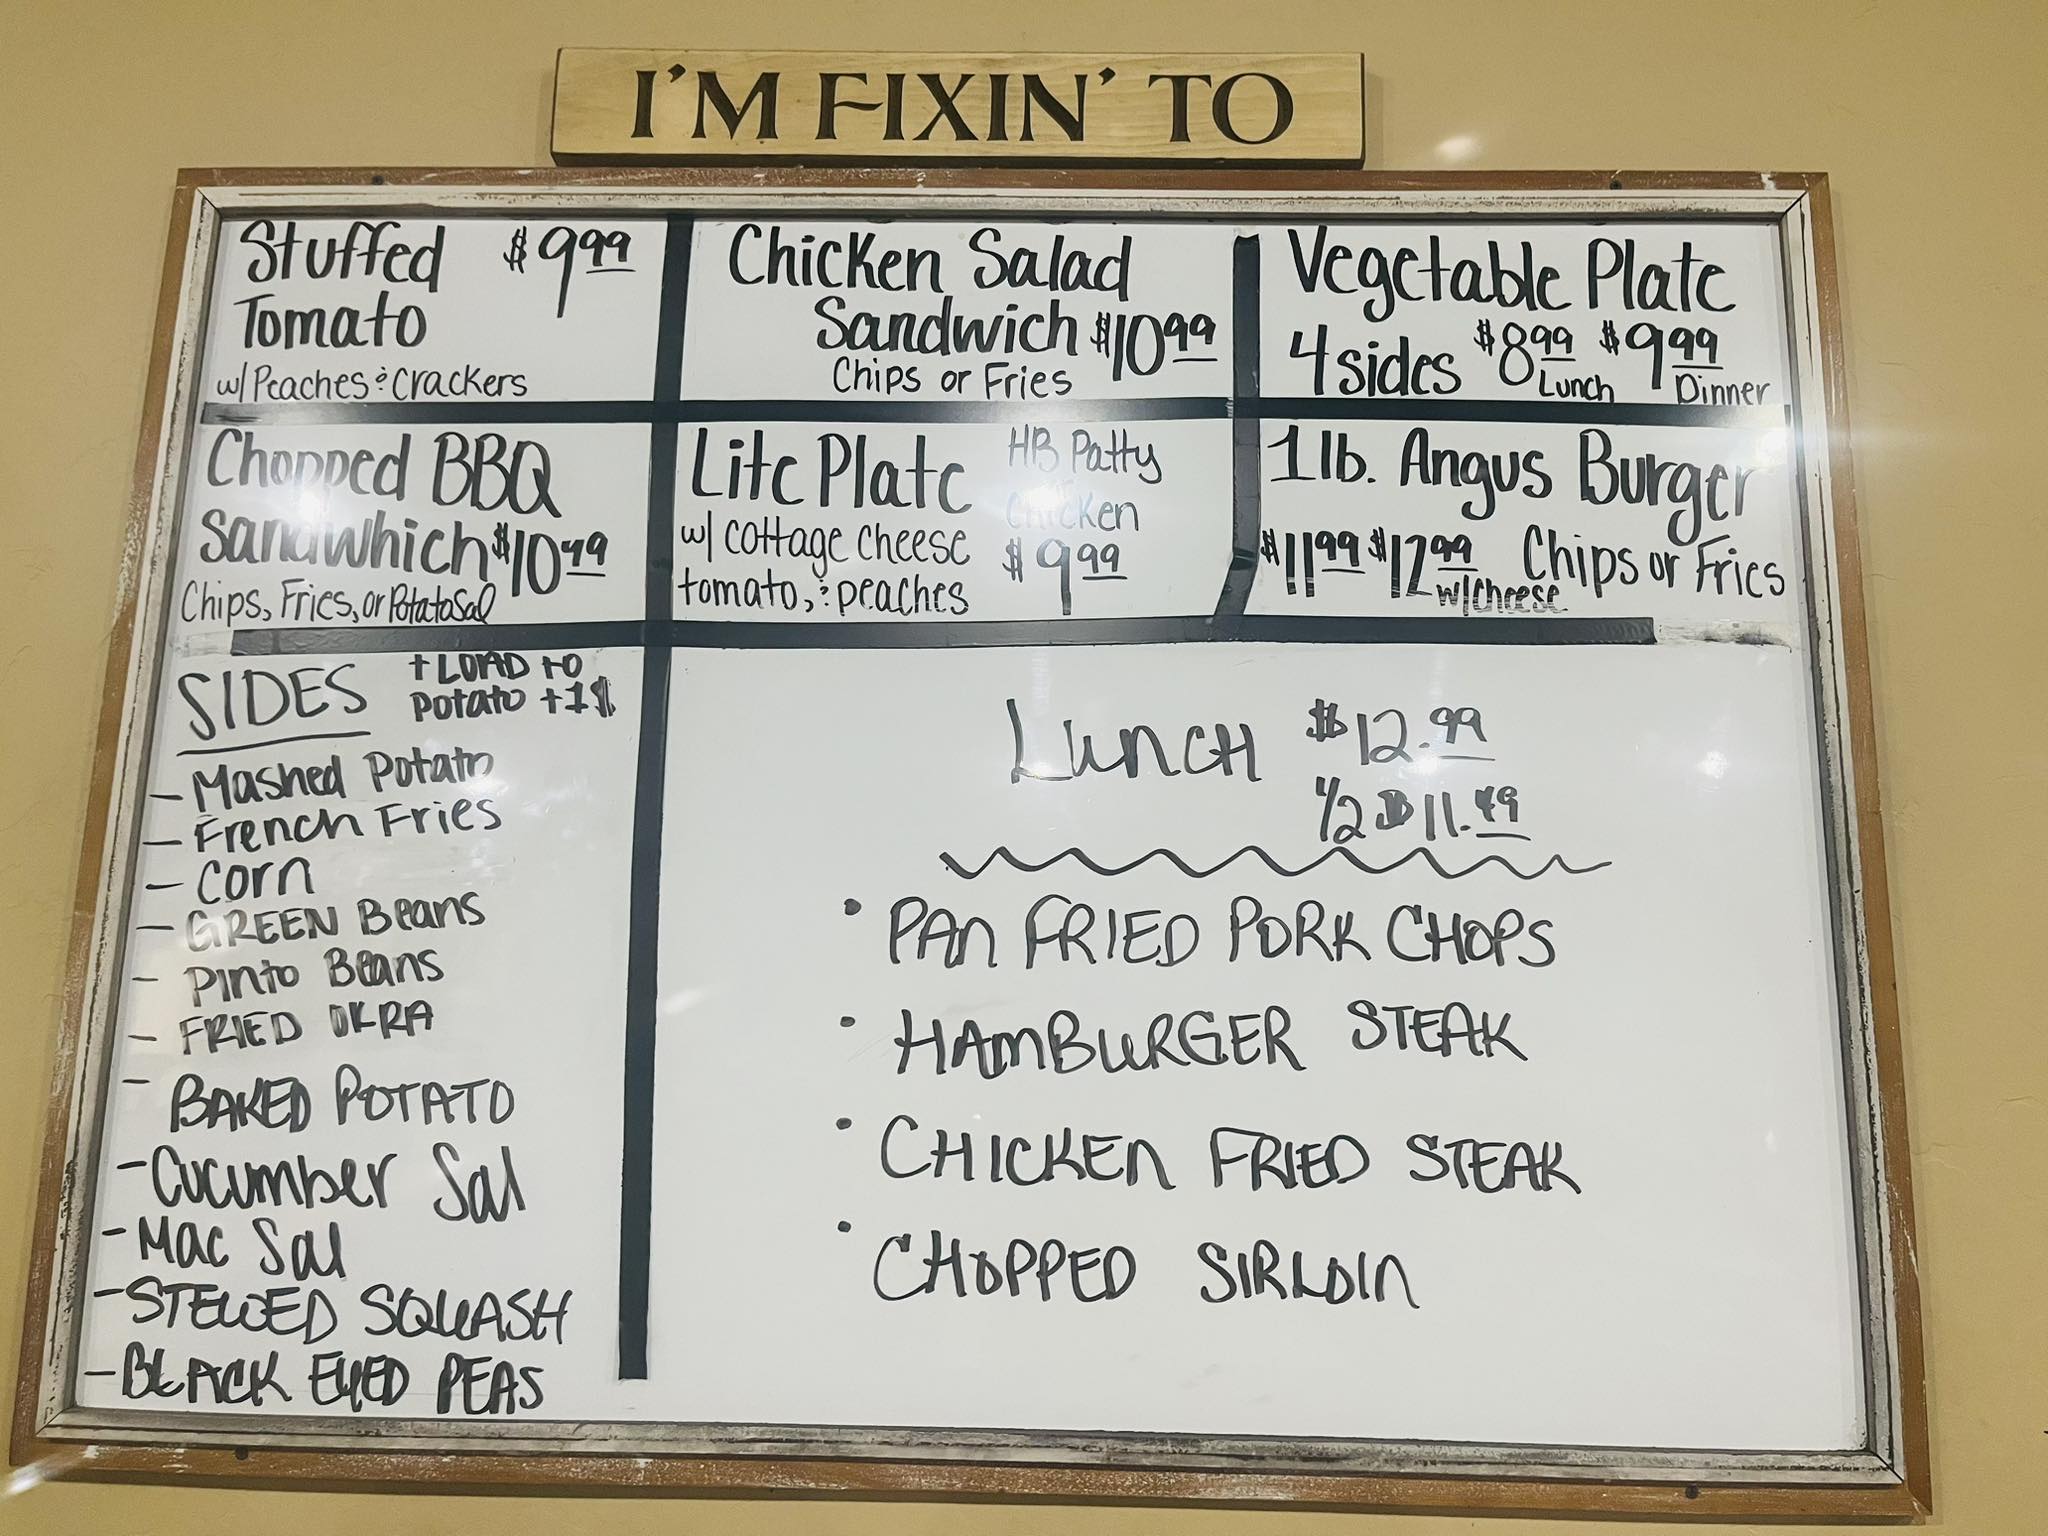 I'M FIXIN' TO
Stuffed $9.99
Tomato
w/ Peaches & Crackers
Chicken Salad
Sandwich $10.99
Chips or Fries
Vegetable Plate
4 sides $8.99 Lunch $9.99 Dinner
Chopped BBQ
Sandwhich $10.49
Chips, Fries, or Potato Sal
Lite Plate
w/ cottage cheese
tomato, & peaches
HB Patty
Chicken
$9.99
1 lb. Angus Burger
$11.99 $12.99 w/cheese Chips or Fries
SIDES
+ LOAD to
Potato +1$
- Mashed Potato
- French Fries
- Corn
- GREEN Beans
- Pinto Beans
- FRIED OKRA
- BAKED POTATO
- Cucumber Sal
- Mac Sal
- STEWED SQUASH
- BLACK EYED PEAS
LUNCH $12.99
1/2 $11.49
• PAN FRIED PORK CHOPS
• HAMBURGER STEAK
• CHICKEN FRIED STEAK
• CHOPPED SIRLOIN